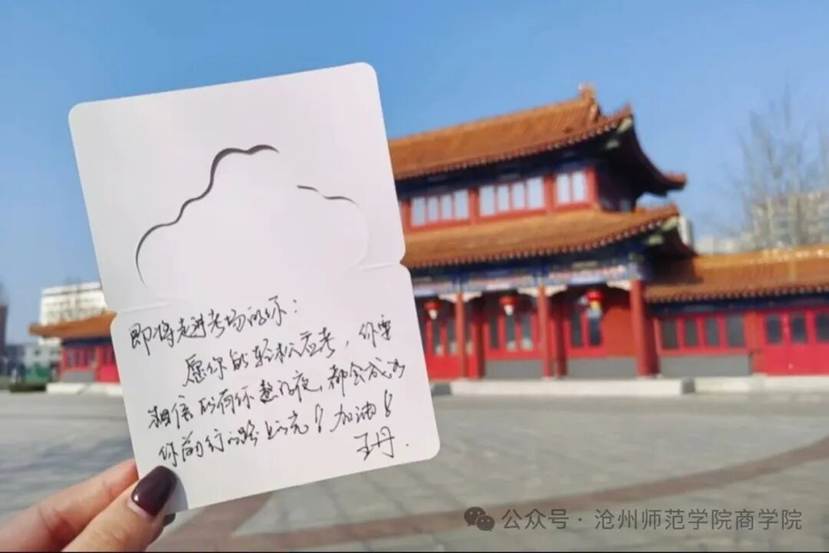 即将走进考场的你：
愿你能轻松应考，你要
相信所有怀揣的夜，都会成为
你前行的路上的光！加油！
王丹.
公众号 · 沧州师范学院商学院